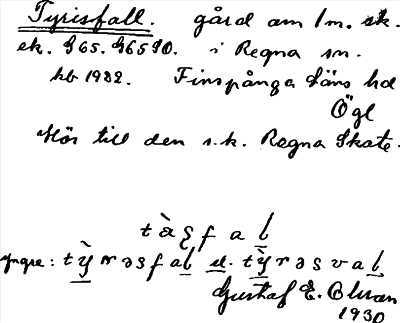 Tyrisfall. gård om 1 m. sk.
ek. G65. G6590. i Regna sn.
kb 1932. Finspånga läns hd
Ögl
Hör till den s.k. Regna Skate.
t à ʂ f a l
yngre: t ỳ r ə s f a l el. t ỳ r ə ʂ v a l
Gustaf E. Olwan
1930